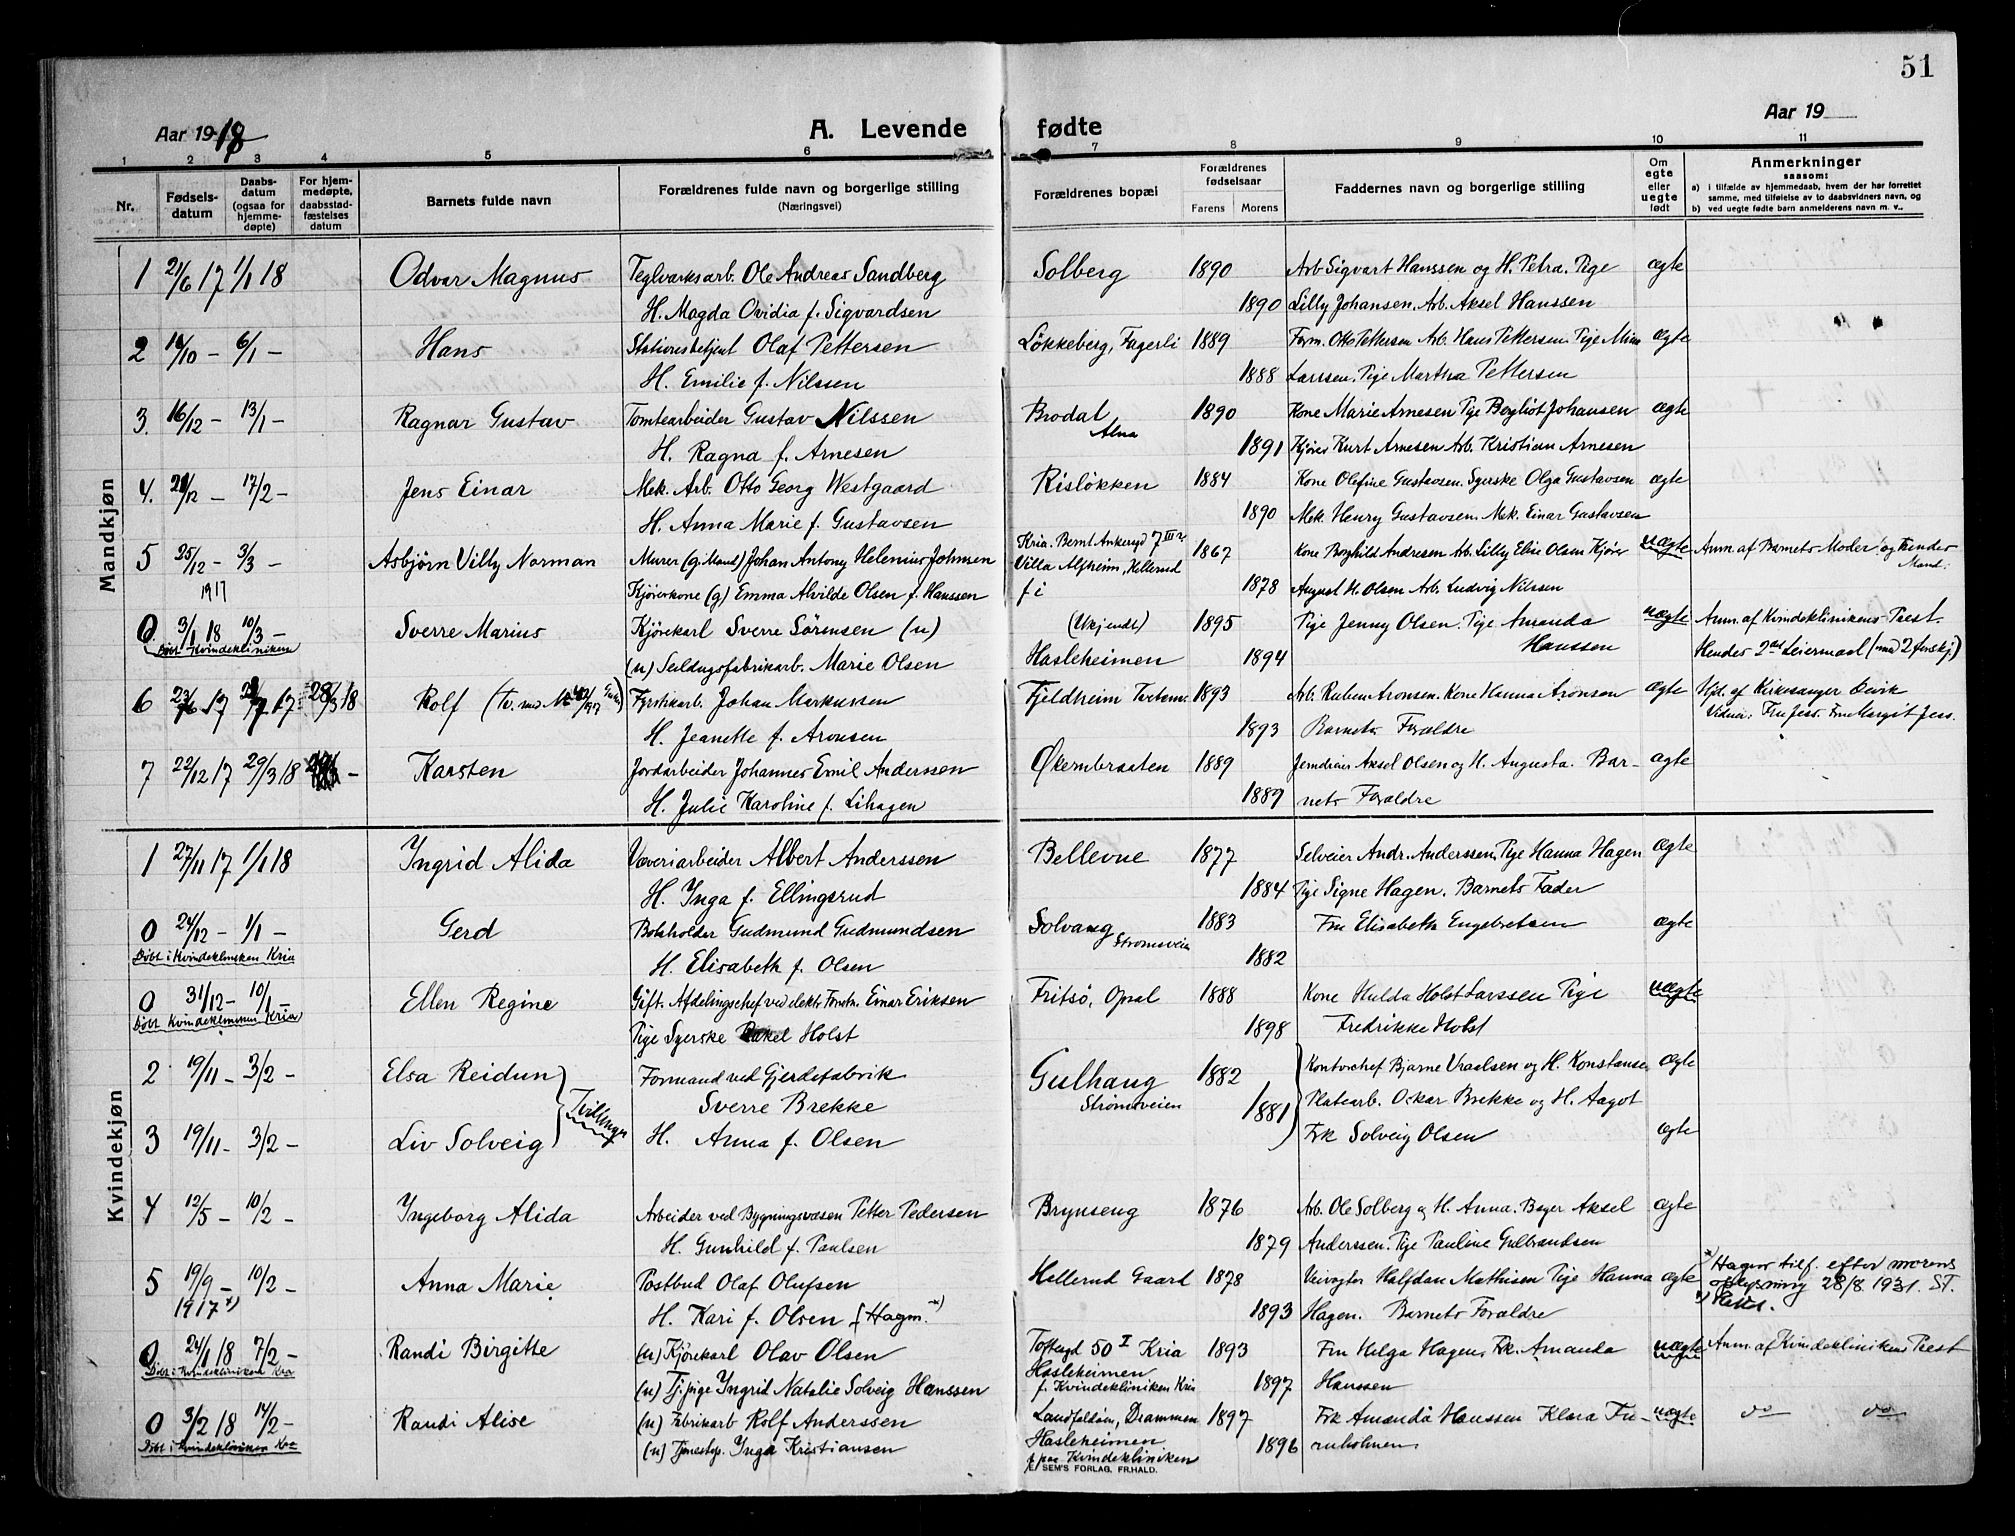 51
Aar 1918
A. Levende fødte
Aar 19
1 2 3 4 5 6 7 8 9 10 11
Nr.
Fødsels-
datum
Daabs-
datum
(ogsaa for
hjemme-
døpte)
For hjem-
medøpte,
daabsstad-
fæstelses
datum
Barnets fulde navn
Forældrenes fulde navn og borgerlige stilling
(Næringsvei)
Forældrenes bopæl
Forældrenes
fødselsaar
Farens Morens
Faddernes navn og borgerlige stilling
Om
egte
eller
uegte
født
Anmerkninger
saasom:
a) i tilfælde av hjemmedaab, hvem der har forrettet
samme, med tilføielse av to daabsvidners navn, og
b) ved uegte fødte barn anmelderens navn m. v..
Mandkjøn
1 21/6 17 1/1 18 Odvar Magnus Teglverksarb. Ole Andreas Sandberg Solberg 1890 Arb Sigvart Hanssen og H. Petra. Pige ægte
H. Magda Ovidia f. Sigvardsen 1890 Lilly Johansen. Arb. Aksel Hanssen
2 /10 – 6/1 – Hans Stationsbetjent Olaf Pettersen Løkkeberg, Fagerli 1889 Form. Otto Pettersen Arb. Hans Pettersen. Pige Mina ægte
H. Emilie f. Nilssen 1888 Larssen. Pige Martha Pettersen
3. 16/12 – 13/1 – Ragnar Gustav Tomtearbeider Gustav Nilssen Brodal 1890 Kone Marie Arnesen Pige Bergliot Johansen ægte
Alna
H. Ragna f. Arnesen 1891 Kjører Kurt Arnesen Arb. Kristian Arnesen
4. /12 – 17/2 – Jens Einar Mek. Arb. Otto Georg Westgaard Risløkken 1884 Kone Olefine Gustavsen. Syerske Olga Gustavsen ægte
H. Anna Marie f. Gustavsen 1890 Mek. Henry Gustavsen. Mek. Einar Gustavsen
5 25/12 – 3/3 – Asbjørn Villy Norman Murer (g. Mand) Johan Antony Helenius Johnsen Kria. Bernt Ankersgd 7 III 1867 Kone Borghild Andresen Arb. Lilly Elise Olsen Kjører uægte Anm. af Barnets Moder og Hendes
Mand.
Villa Alfheim, Hellerud
1917 Kjørerkone (g) Emma Alvilde Olsen f. Hanssen f i 1878 August H. Olsen Arb. Ludvig Nilssen
0. 3/1 18 10/3 – Sverre Marius Kjørekarl Sverre Sørensen (u) (Ukjendt) 1895 Pige Jenny Olsen. Pige Amanda uægte Anm. af Kvindeklinikens Prest.
Døbt Kvindekliniken Hanssen
(u) Seildugsfabrikarb. Marie Olsen Hasleheimen 1894 Hendes 2det Leiermaal (med 2 forskj.)
6 23/6 17 /7 17 28/3 18 Rolf Fyrstikarb. Johan Markussen Fjeldheim Tveten 1893 Arb. Ruben Aronsen. Kone Hanna Aronsen ægte Hjd. af Kirkesanger
Vidner: Fru Jess. Frk Margit Jess.
H. Jeanette f. Aronsen 1893 Barnets Forældre
7 22/12 17 29/3 18 – Karsten Jordarbeider Johannes Emil Anderssen Økernbraaten 1889 Jerndreier Aksel Olsen og H. Augusta. Bar– ægte
H. Julie Karoline f. Lihagen 1889 nets Forældre
Kvindekjøn
1 27/11 17 1/1 18 Ingrid Alida Væveriarbeider Albert Anderssen Bellevue 1877 Selveier Andr. Anderssen, Pige Hanna Hagen ægte
H. Inga f. Ellingsrud 1884 Pige Signe Hagen. Barnets Fader
0 24/12 – 1/1 – Gerd Bokholder Gudmund Gudmundsen Solvang 1883 Fru Elisabeth Engebretsen ægte
Strømsveien
Døbt i Kvindekliniken Kria H. Elisabeth f. Olsen 1882
0 31/12 – 10/1 – Ellen Regine Gift. Afdelingschef ved elektr. Forretn. Einar Eriksen Fritsø, Opsal 1888 Kone Hulda Holst Larssen Pige uægte
Døbt Kvindekliniken Kria Pige Syerske Rakel Holst 1898 Fredrikke Holst
2 19/11 – 3/2 – Elsa Reidun Formand ved Gjerdefabrik Gulhaug 1882 Kontorchef Bjarne Vraalsen og H. Konstanse ægte
Tvillinger Sverre Brekke Strømsveien 1881 Platearb. Oskar Brekke og H. Aagot
3 19/11 – 3/2 – Liv Solveig H. Anna f. Olsen Frk Solveig Olsen ægte
4 12/5 – 10/2 – Ingeborg Alida Arbeider ved Bygningsvæsen Petter Pedersen Brynseng 1876 Arb. Ole Solberg og H. Anna. Bager Aksel ægte
H. Gunhild f. Paulsen 1879 Anderssen. Pige Pauline Gulbrandsen
5 19/9 – 10/2 – Anna Marie Postbud Olaf Olufsen Hellerud Gaard 1878 Veivogter Halfdan Mathisen Pige Hanna ægte x) Hagen tilf. efter morens
oplysning 28/8 1931. ST.
1917 x) H. Kari f. Olsen (Hagen x) 1893 Hagen. Barnets Forældre
0 24/1 18 7/2 – Randi Birgitte (u) Kjørekarl Olav Olsen Toftesgd 50 I Kria 1893 Fru Helga Hagen, Frk. Amanda uægte Anm. af Kvindeklinikens Prest
Døbt i Kvindekliniken Kra Hasleheimen
f. Kvindekliniken Kria
(u) Tj.pige Ingrid Natalie Solveig Hanssen 1897 Hanssen
0 3/2 18 14/2 – Randi Alise (u) Fabrikarb Rolf Anderssen Landfaldøen, Drammen 1897 Frk Amanda Hanssen Klara Fu– uægte do do
Døbt i Kvindekliniken Kra (u) Tjenestep. Inga Kristiansen Hasleheimen 1896 ruholmen
f. paa Kvindekliniken
E. SEM'S FORLAG, FR.HALD.